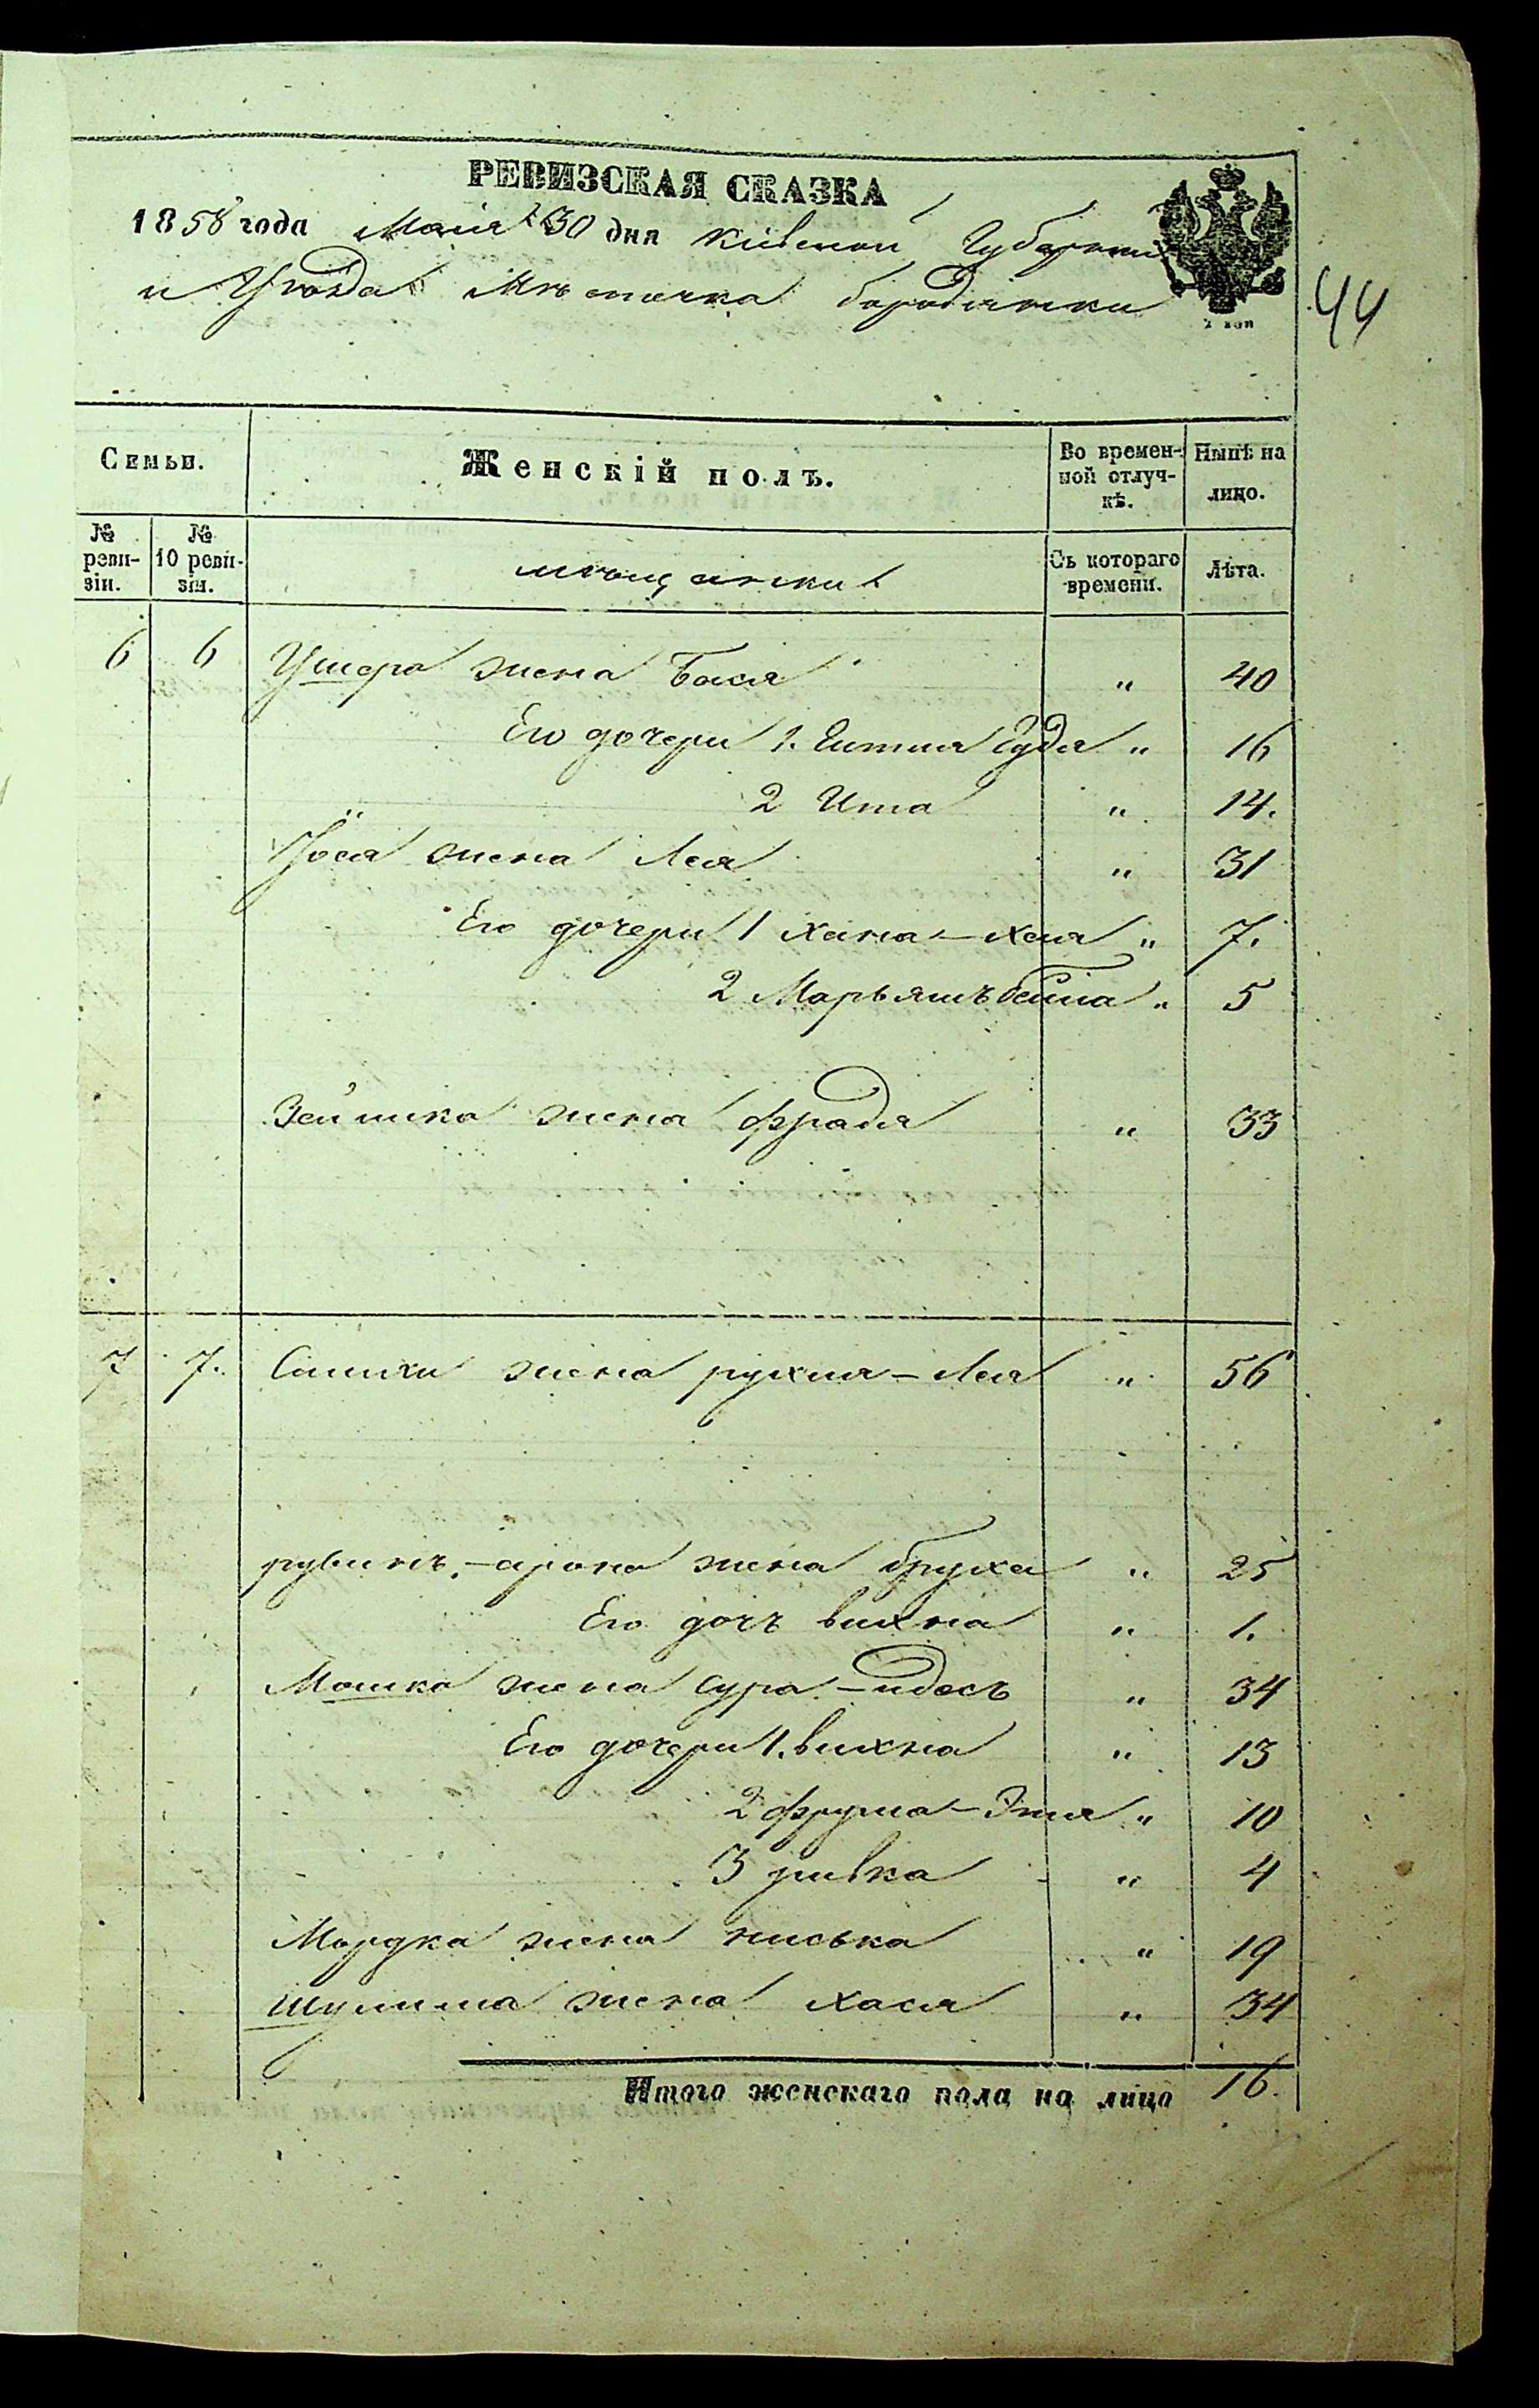 РЕВИЗСКАЯ СКАЗКА
1858 года Маія 30 дня Кіевской Губерніи
и Уѣзда Мѣстечка бородянки
44
2 коп
Семьи.
Женскій полъ.
Во времен-
ной отлуч-
кѣ.
Нынѣ на
лицо.
№
реви-
зіи.
№
10 реви-
зіи.
мѣщанки
Съ котораго
времени.
Лѣта.
6 6 Ушера жена Бася " 40
Его дочери 1. Ентля Гудя " 16
2 Ита " 14.
Іося жена Лея " 31
Его дочери 1 Хана-Хая " 7.
2 Марьямъ бейла " 5
Зейлика жена фрадя " 33
7 7. Симхи жена рухля-Лея " 56
рувинъ-арона жена бруха " 25
Его дочъ вихна " 1.
Мошка жена Сура-идесъ " 34
Его дочери 1. вихна " 13
2 фрума-Этя " 10
3 ривка " 4
Мордка жена ниська " 19
Шулима жена хася " 34
Итого женскаго пола на лицо 16.